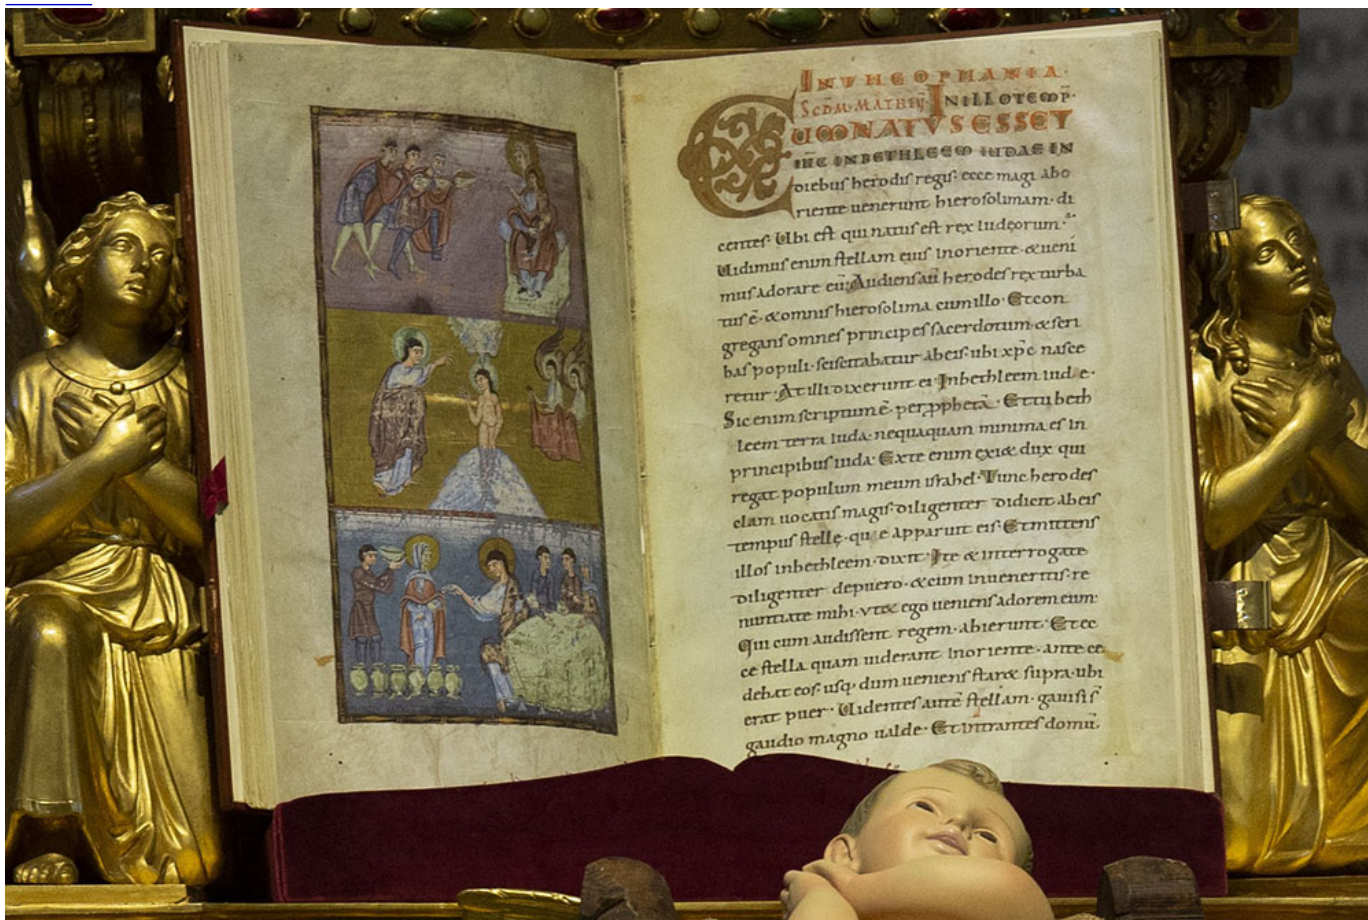 IN THEOPHANIA·
SCDM·MATHEV̄ IN ILLO TEMP̄·
CUM NATVS ESSET
IHC̄ IN BETHLEEM IUDAE IN
diebus herodis regis· ecce magi abo
riente uenerunt hierosolimam· di
centes· Ubi est qui natus est rex iudęorum·
Uidimus enim stellam eius inoriente· &ueni
mus adorare eū· Audiens aū herodes rex turba
tus ē· &omnis hierosolima cum illo· Et con
gregans omnes principes sacerdotum· &scri
bas populi· sciscitabatur abeis· ubi xp̄c nasce
retur· At illi dixerunt ei· Inbethleem iudae·
Sic enim scriptum ē· per pphetā· Et tu beth
leem terra iuda· nequaquam minima es in
principibus iuda· Ex te enim exi& dux qui
regat populum meum israhel· Tunc herodes
clam uocatis magis· diligenter didicit abeis
tempus stellę· quae apparuit eis· Et mittens
illos inbethleem· dixit· Ite & interrogate
diligenter depuero· &cum inueneritis· re
nuntiate mihi· vt& ego ueniens adorem eum·
Qui cum audissent regem· abierunt· Et ec
ce stella quam uiderant inoriente· ante ce
debat eos· usq· dum ueniens star& supra· ubi
erat puer· Uidentes autē stellam· gauisi s̄
gaudio magno ualde· Et intrantes domū·